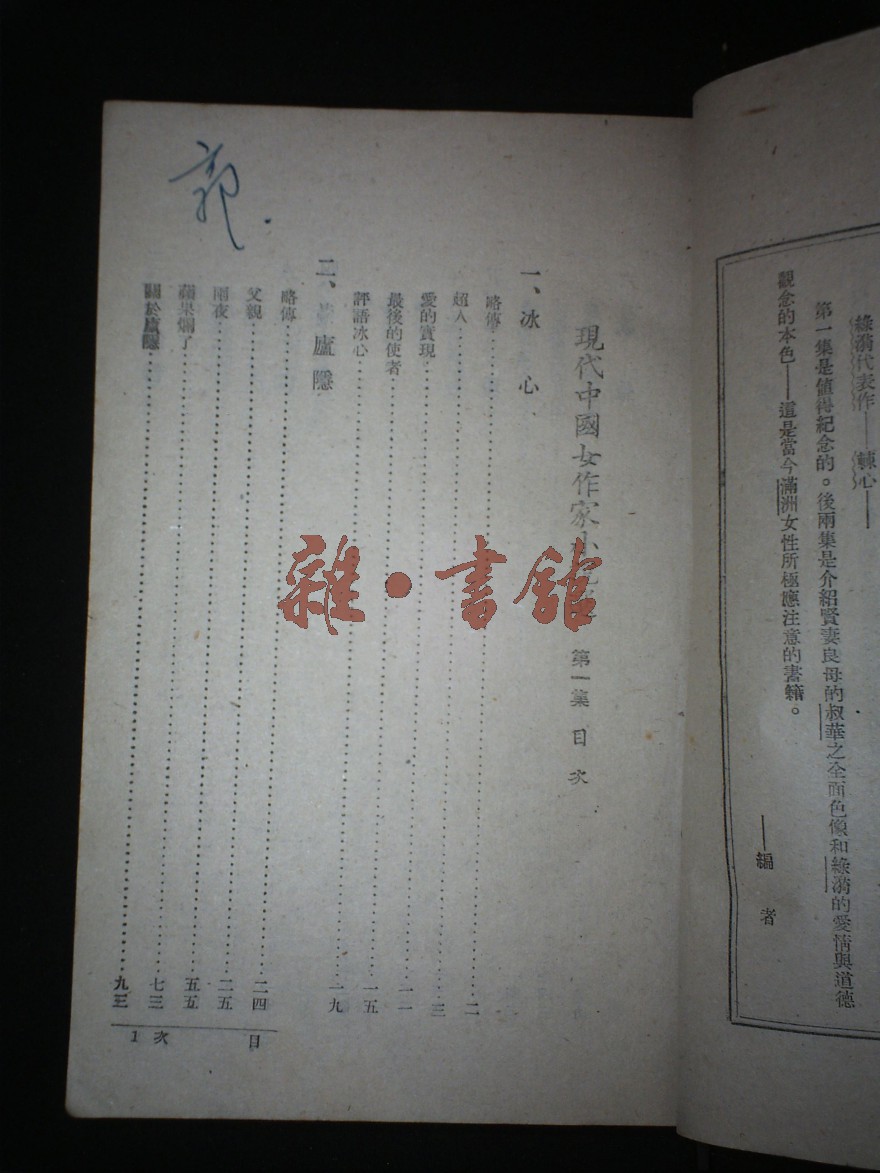 綠漪代表作——棘心——
第一集是値得紀念的。後兩集是介紹賢妻良母的叔華之全面色像和綠漪的愛情與道德
觀念的本色——這是當今滿洲女性所極應注意的書籍。
——編者
現代中國女作家 第一集 目次
一、冰心
略傳……二
超人……三
愛的實現……一一
最後的使者……一五
評語冰心……一九
二、廬隱
略傳……二四
父親……二五
雨夜……五五
蘋果爛了……七三
關於廬隱……九三
目次 1
郭
雜·書舘